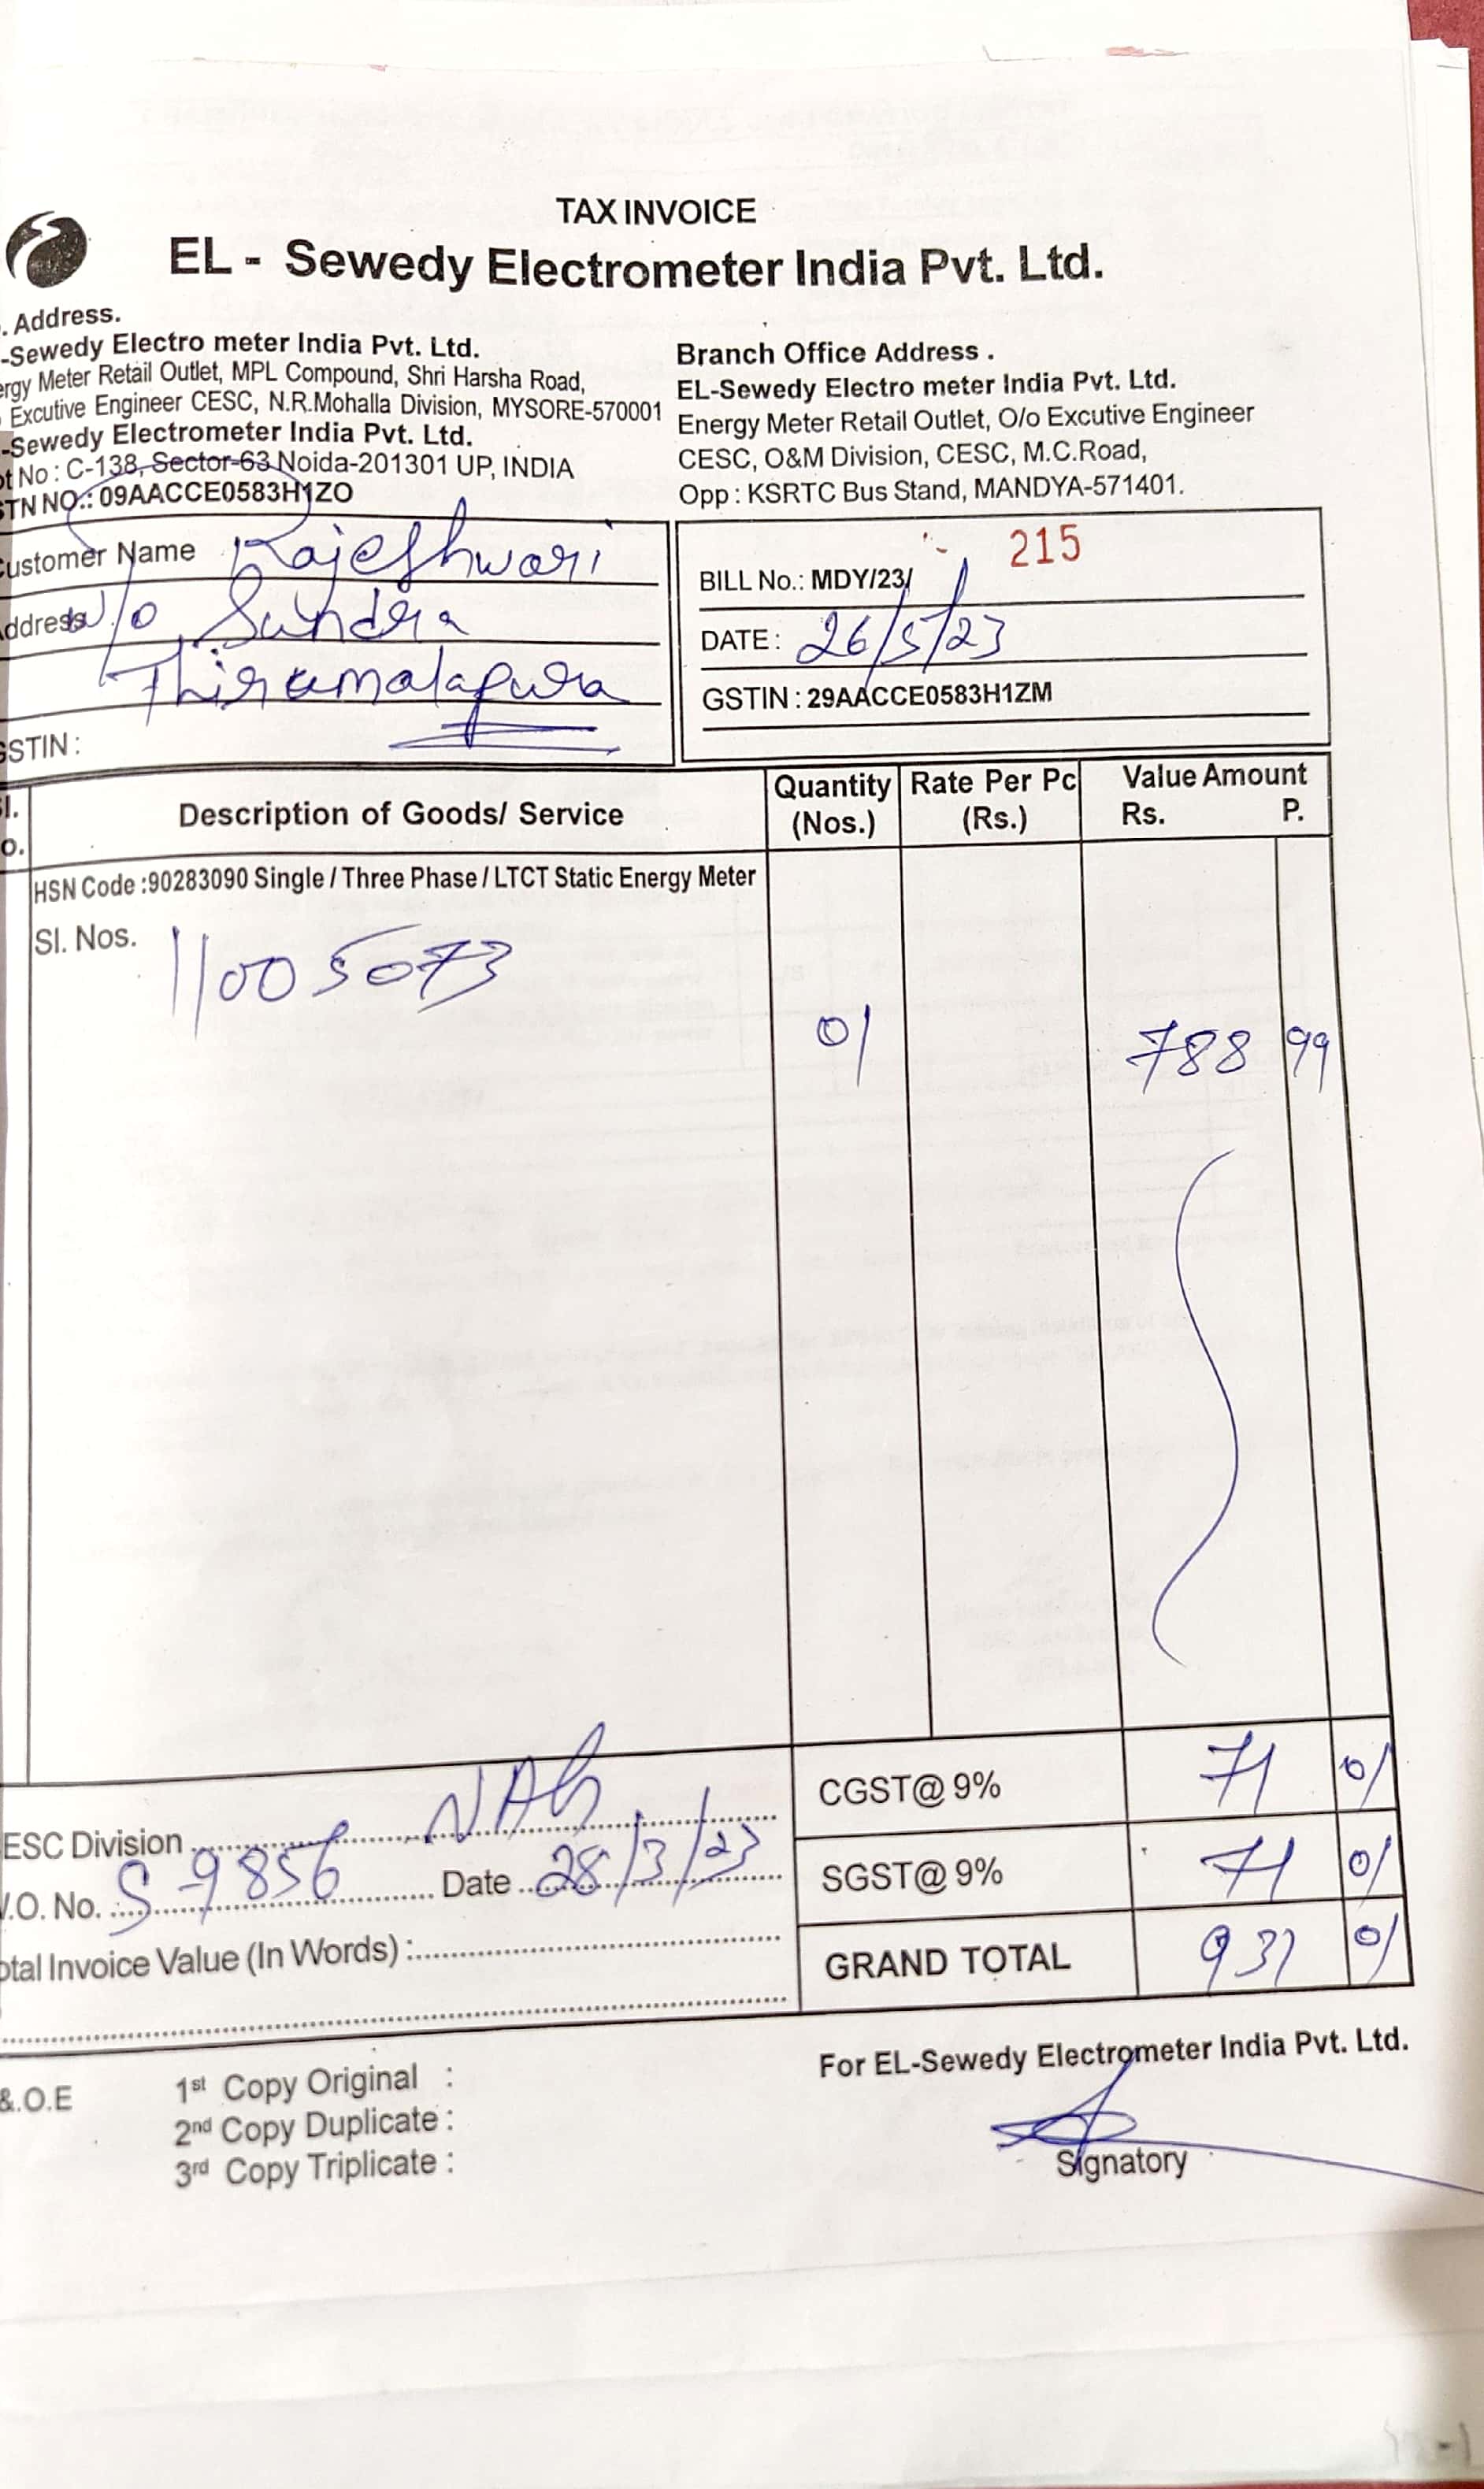 TAX INVOICE
EL - Sewedy Electrometer India Pvt. Ltd.
. Address.
-Sewedy Electro meter India Pvt. Ltd.
ergy Meter Retail Outlet, MPL Compound, Shri Harsha Road,
Excutive Engineer CESC, N.R.Mohalla Division, MYSORE-570001
-Sewedy Electrometer India Pvt. Ltd.
ot No : C-138, Sector-63 Noida-201301 UP, INDIA
STN NO.: 09AACCE0583H1ZO
Branch Office Address .
EL-Sewedy Electro meter India Pvt. Ltd.
Energy Meter Retail Outlet, O/o Excutive Engineer
CESC, O&M Division, CESC, M.C.Road,
Opp : KSRTC Bus Stand, MANDYA-571401.
Customer Name Rajeshwari
Address W/o Sundra
Thirumalapura
GSTIN :
BILL No.: MDY/23/ 215
DATE : 26/5/23
GSTIN : 29AACCE0583H1ZM
Sl. No. Description of Goods/ Service Quantity (Nos.) Rate Per Pc (Rs.) Value Amount Rs. P.
HSN Code :90283090 Single / Three Phase / LTCT Static Energy Meter
Sl. Nos. 11005073
01 788 99
CGST@ 9% 71 01
SGST@ 9% 71 01
GRAND TOTAL 931 01
ESC Division
.O. No. S 9856 Date 28/3/23
otal Invoice Value (In Words) :
For EL-Sewedy Electrometer India Pvt. Ltd.
&.O.E
1st Copy Original :
2nd Copy Duplicate :
3rd Copy Triplicate :
Signatory